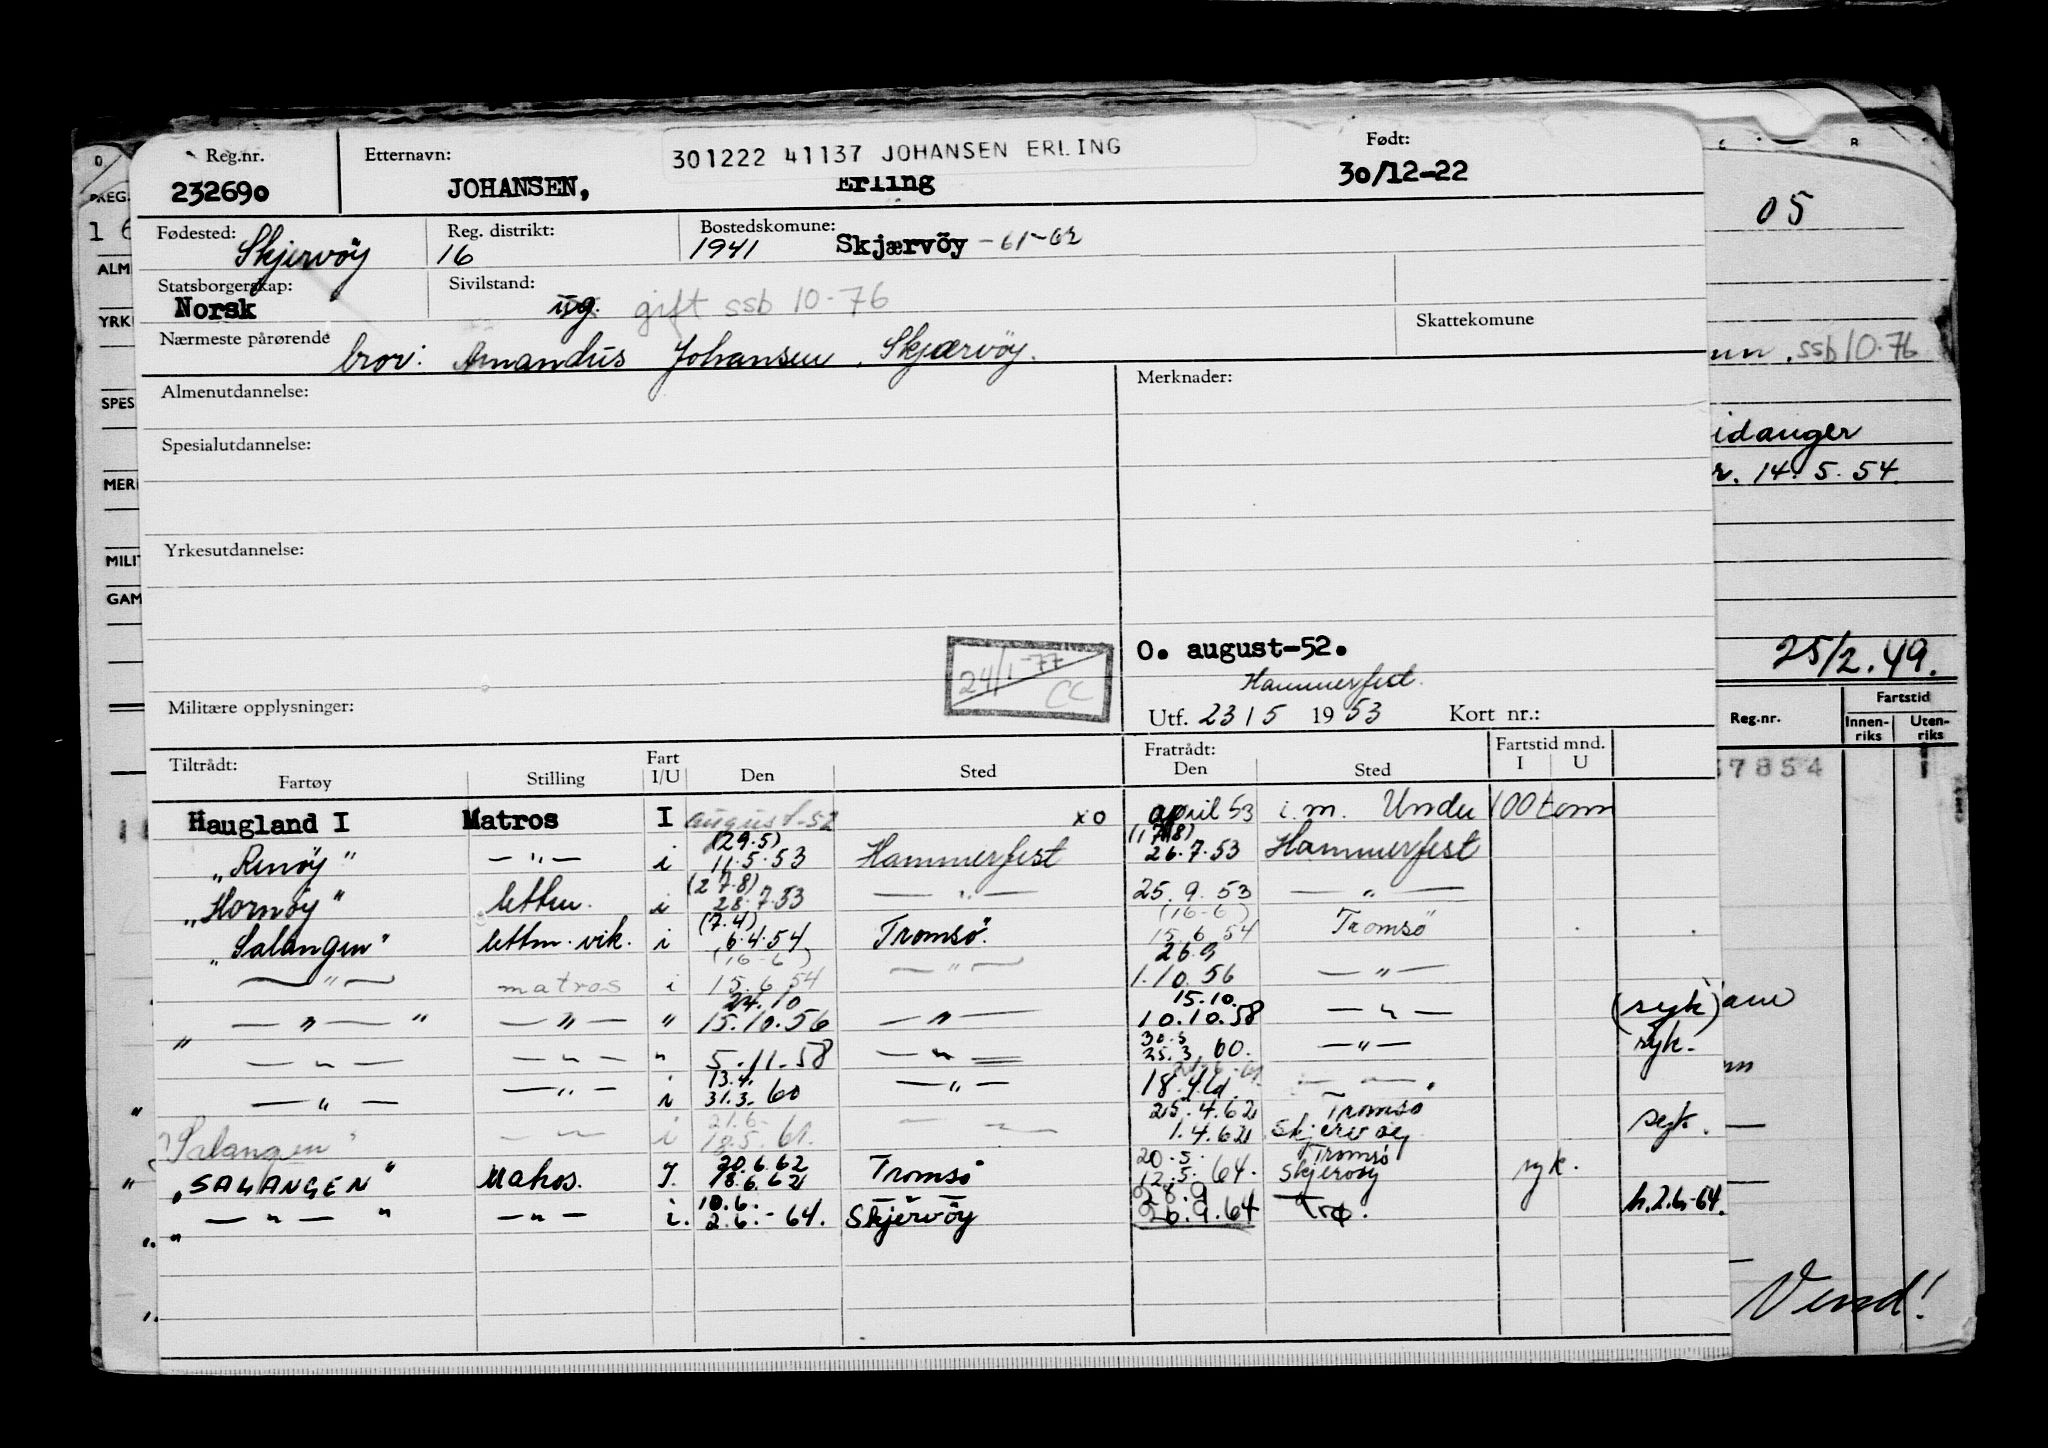 Reg.nr. Etternavn: 301222 41137 JOHANSEN ERLING Født:
232690 JOHANSEN, Erling 30/12-22
Fødested: Reg. distrikt: Bostedskomune:
Skjervöy 16 1941 Skjærvöy - 61-62
Statsborgerskap: Sivilstand:
Norsk ug. gift ssb 10-76
Nærmeste pårørende Skattekomune
bror: Amandus Johansen, Skjærvöy.
Almenutdannelse: Merknader:
Spesialutdannelse:
Yrkesutdannelse:
O. august-52.
24/1-77 CC
Hammerfest.
Militære opplysninger: Utf. 23/5 1953 Kort nr.:
Tiltrådt: Fart Fratrådt: Fartstid mnd.
Fartøy Stilling I/U Den Sted Den Sted I U
Haugland I Matros I august-52 xo april 53 i.m. Under 100 tonn
(29.5) (17/8)
"Renöy" — " — i 11.5.53 Hammerfest 26.7.53 Hammerfest
(27-8)
"Hornöy" lettm. i 28.7.53 — " — 25.9.53 — " —
(7.4) (16-6)
"Salangen" lettm. vik. i 6.4.54 Tromsö. 15.6.54 Tromsö
(16-6) 26.9
— " — matros i 15.6.54 — " — 1.10.56 — " —
24.10 15.10.
" — " — " — " — " 15.10.56 — " — 10.10.58 — " — (syk)
30.3
— " — — " — " 5.11.58 — " — 25.3.60. — " — syk.
13.4.
— " — — " — i 31.3.60 — " — 18. — " —
21.6- 25.4.62 Tromsö
"Salangen" — " — i 18.5.61. — " — 1.4.62 Skjervöy syk.
20.6.62 20.5. Tromsö
"SALANGEN" Matros. I. 18.6.62 Tromsö 12.5.64. Skjervöy syk.
10.6. 28.9
" — " — " — " — i. 2.6.-64. Skjervöy 26.9.64 Trø. h.2.6-64.
O
REG.
1 6
ALM
YRK
SPES
MER
MILIT
GAM
R
05
ssb 10-76
idanger
r. 14.5.54.
25/2.49.
Reg.nr. Fartstid
Innen-riks Uten-riks
7854
Vend!